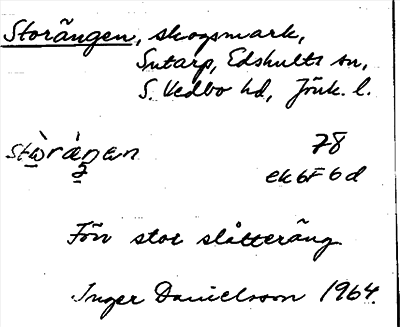 Storängen, skogsmark,
Sutarp, Edshults sn,
S. Vedbo hd, Jönk. l.
78
ek 6F 6 d
Förr stor slåtteräng
Inger Danielsson 1964.